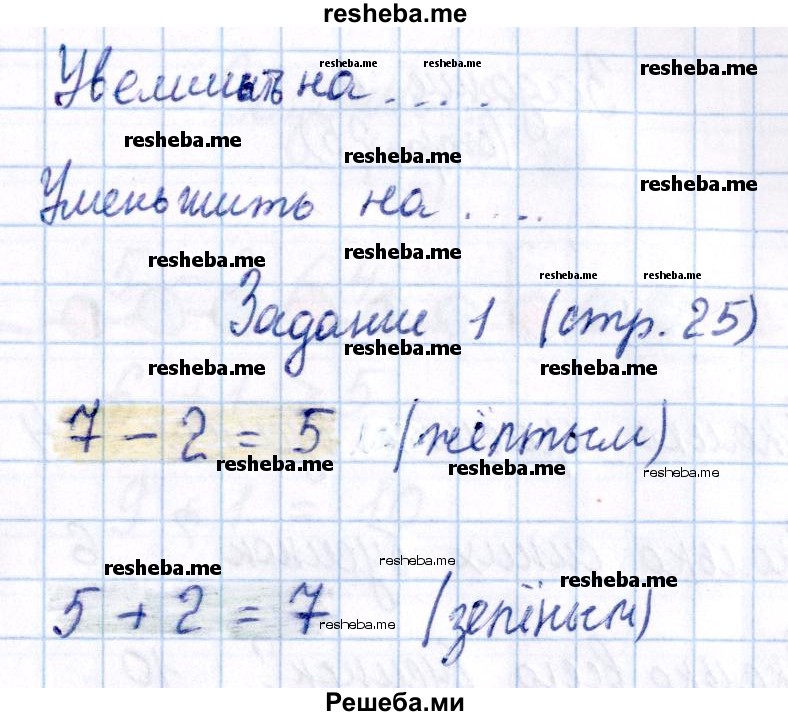 resheba.me
Увеличить на .....
resheba.me resheba.me resheba.me
resheba.me resheba.me
Уменьшить на ....
resheba.me
resheba.me resheba.me
resheba.me resheba.me
Задание 1 (стр. 25)
resheba.me resheba.me resheba.me
7 - 2 = 5 (жёлтым)
resheba.me resheba.me resheba.me
resheba.me resheba.me resheba.me
5 + 2 = 7 (зелёным)
resheba.me
Решеба.ми